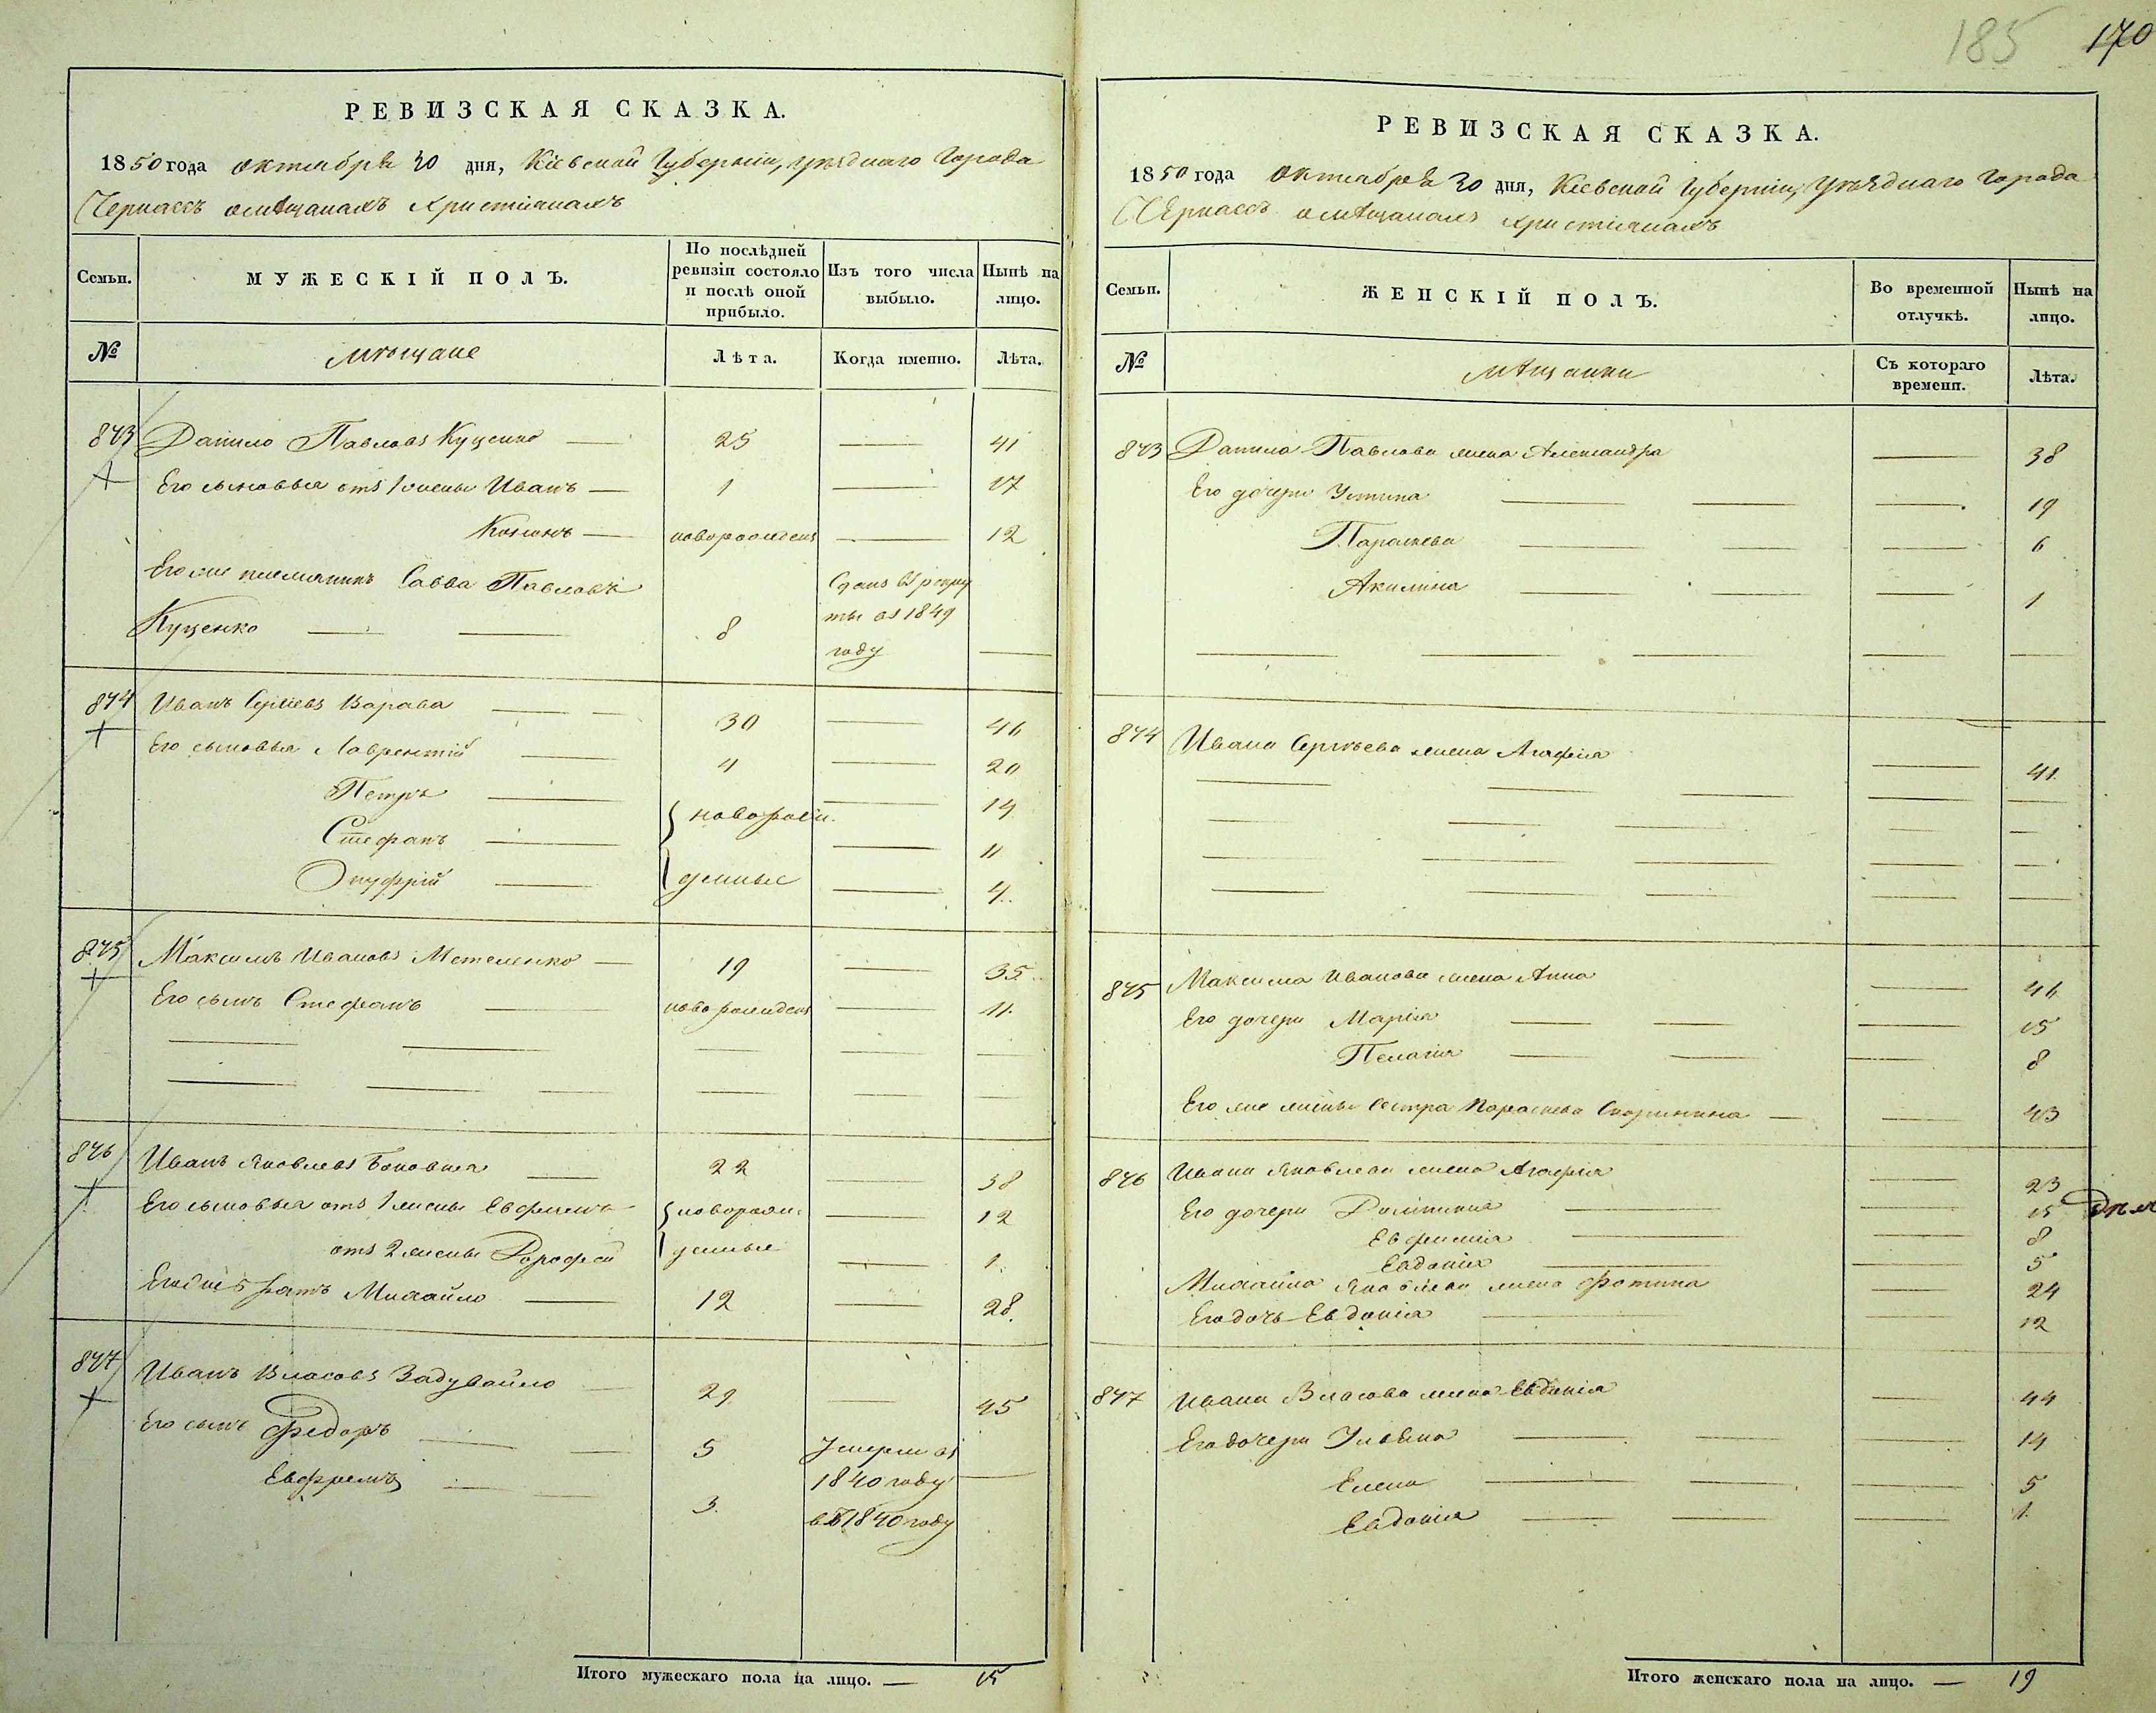 185 170
РЕВИЗСКАЯ СКАЗКА.
1850 года октября 30 дня, Кіевской Губерніи, уѣзднаго Города
Черкассъ о мѣщанахъ христіянахъ
Семьи.
МУЖЕСКІЙ ПОЛЪ.
По послѣдней ревизіи состояло и послѣ оной прибыло.
Изъ того числа выбыло.
Нынѣ на лицо.
№
мѣщане
Лѣта.
Когда именно.
Лѣта.
843 Данило Павловъ Куценко — 25 — 41
Его сыновья отъ 1 жены Иванъ — 1 — 17
Кононъ — новорожденъ — 12
Его же племянникъ Савва Павловъ Сданъ въ рекру
Куценко — — 8 ты въ 1849
году —
844 Иванъ Сергѣевъ Варава — — 30 — 46
Его сыновья Лаврентій — 4 — 20
Петръ — новорож — 14
Стефанъ — — 11
Онуфрій — денные — 4
845 Максимъ Ивановъ Метеленко — 19 — 35
Его сынъ Стефанъ — новорожденъ — 11
846 Иванъ Яковлевъ — 22 — 38
Его сыновья отъ 1 жены Евфимъ новорож — 12
отъ 2 жены Дорофей денные — 1
Его же братъ Михайло — 12 — 28
847 Иванъ Власовъ Задувайло — 29 — 45
Его сынъ Федоръ — — 5 Умерли въ
1840 году —
Евфремъ — — 3 въ 1840 году
Итого мужескаго пола на лицо. — 15
РЕВИЗСКАЯ СКАЗКА.
1850 года октября 30 дня, Кіевской Губерніи, уѣзднаго Города
Черкассъ о мѣщанахъ христіянахъ
Семьи.
ЖЕНСКІЙ ПОЛЪ.
Во временной отлучкѣ.
Нынѣ на лицо.
№
мѣщанки
Съ котораго времени.
Лѣта.
843 Данила Павлова жена Александра — 38
Его дочери Устина — — — 19
Параскева — — — 6
Акилина — — — 1
844 Ивана Сергѣева жена Агафія — 41
845 Максима Иванова жена Анна — 46
Его дочери Марія — — — 15
Пелагія — — — 8
Его же жены сестра Параскева — — 43
846 Ивана Яковлева жена Агафія — 23
Его дочери — — 15
Евфимія — — 8
Евдокія — 5
Михайла Яковлева жена Фотина 24
Его дочь Евдокія — — 12
847 Ивана Власова жена Евдокія — 44
Его дочери Ульяна — — — 14
Елена — — — 5
Евдокія — — — 1
Итого женскаго пола на лицо. — 19